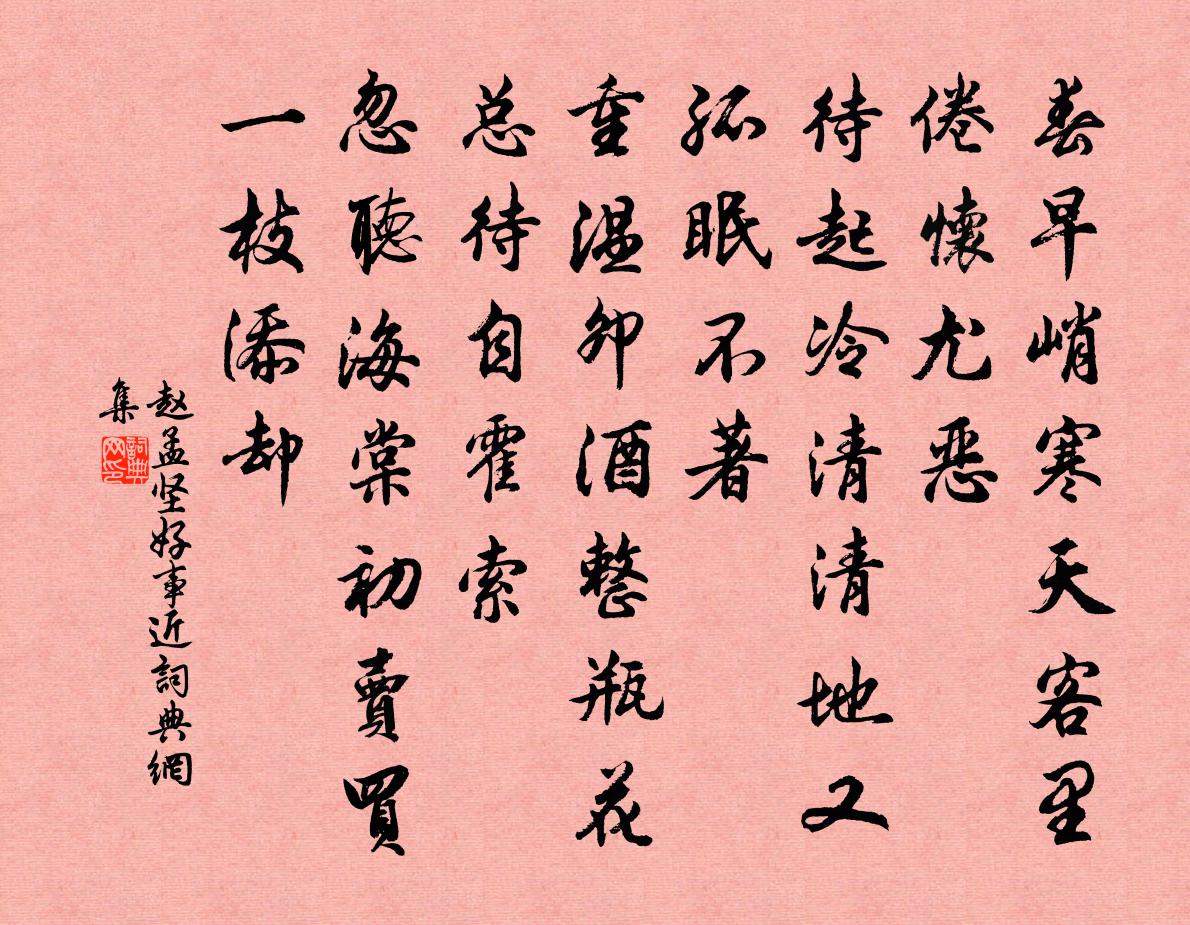 春早峭寒天客里
倦懷尤恶
待起冷清清地又
孤眠不著
重溫卯酒整瓶花
总待自霍索
忽聽海棠初賣買
一枝添却
赵孟坚好事近詞典網
集
詞典網印